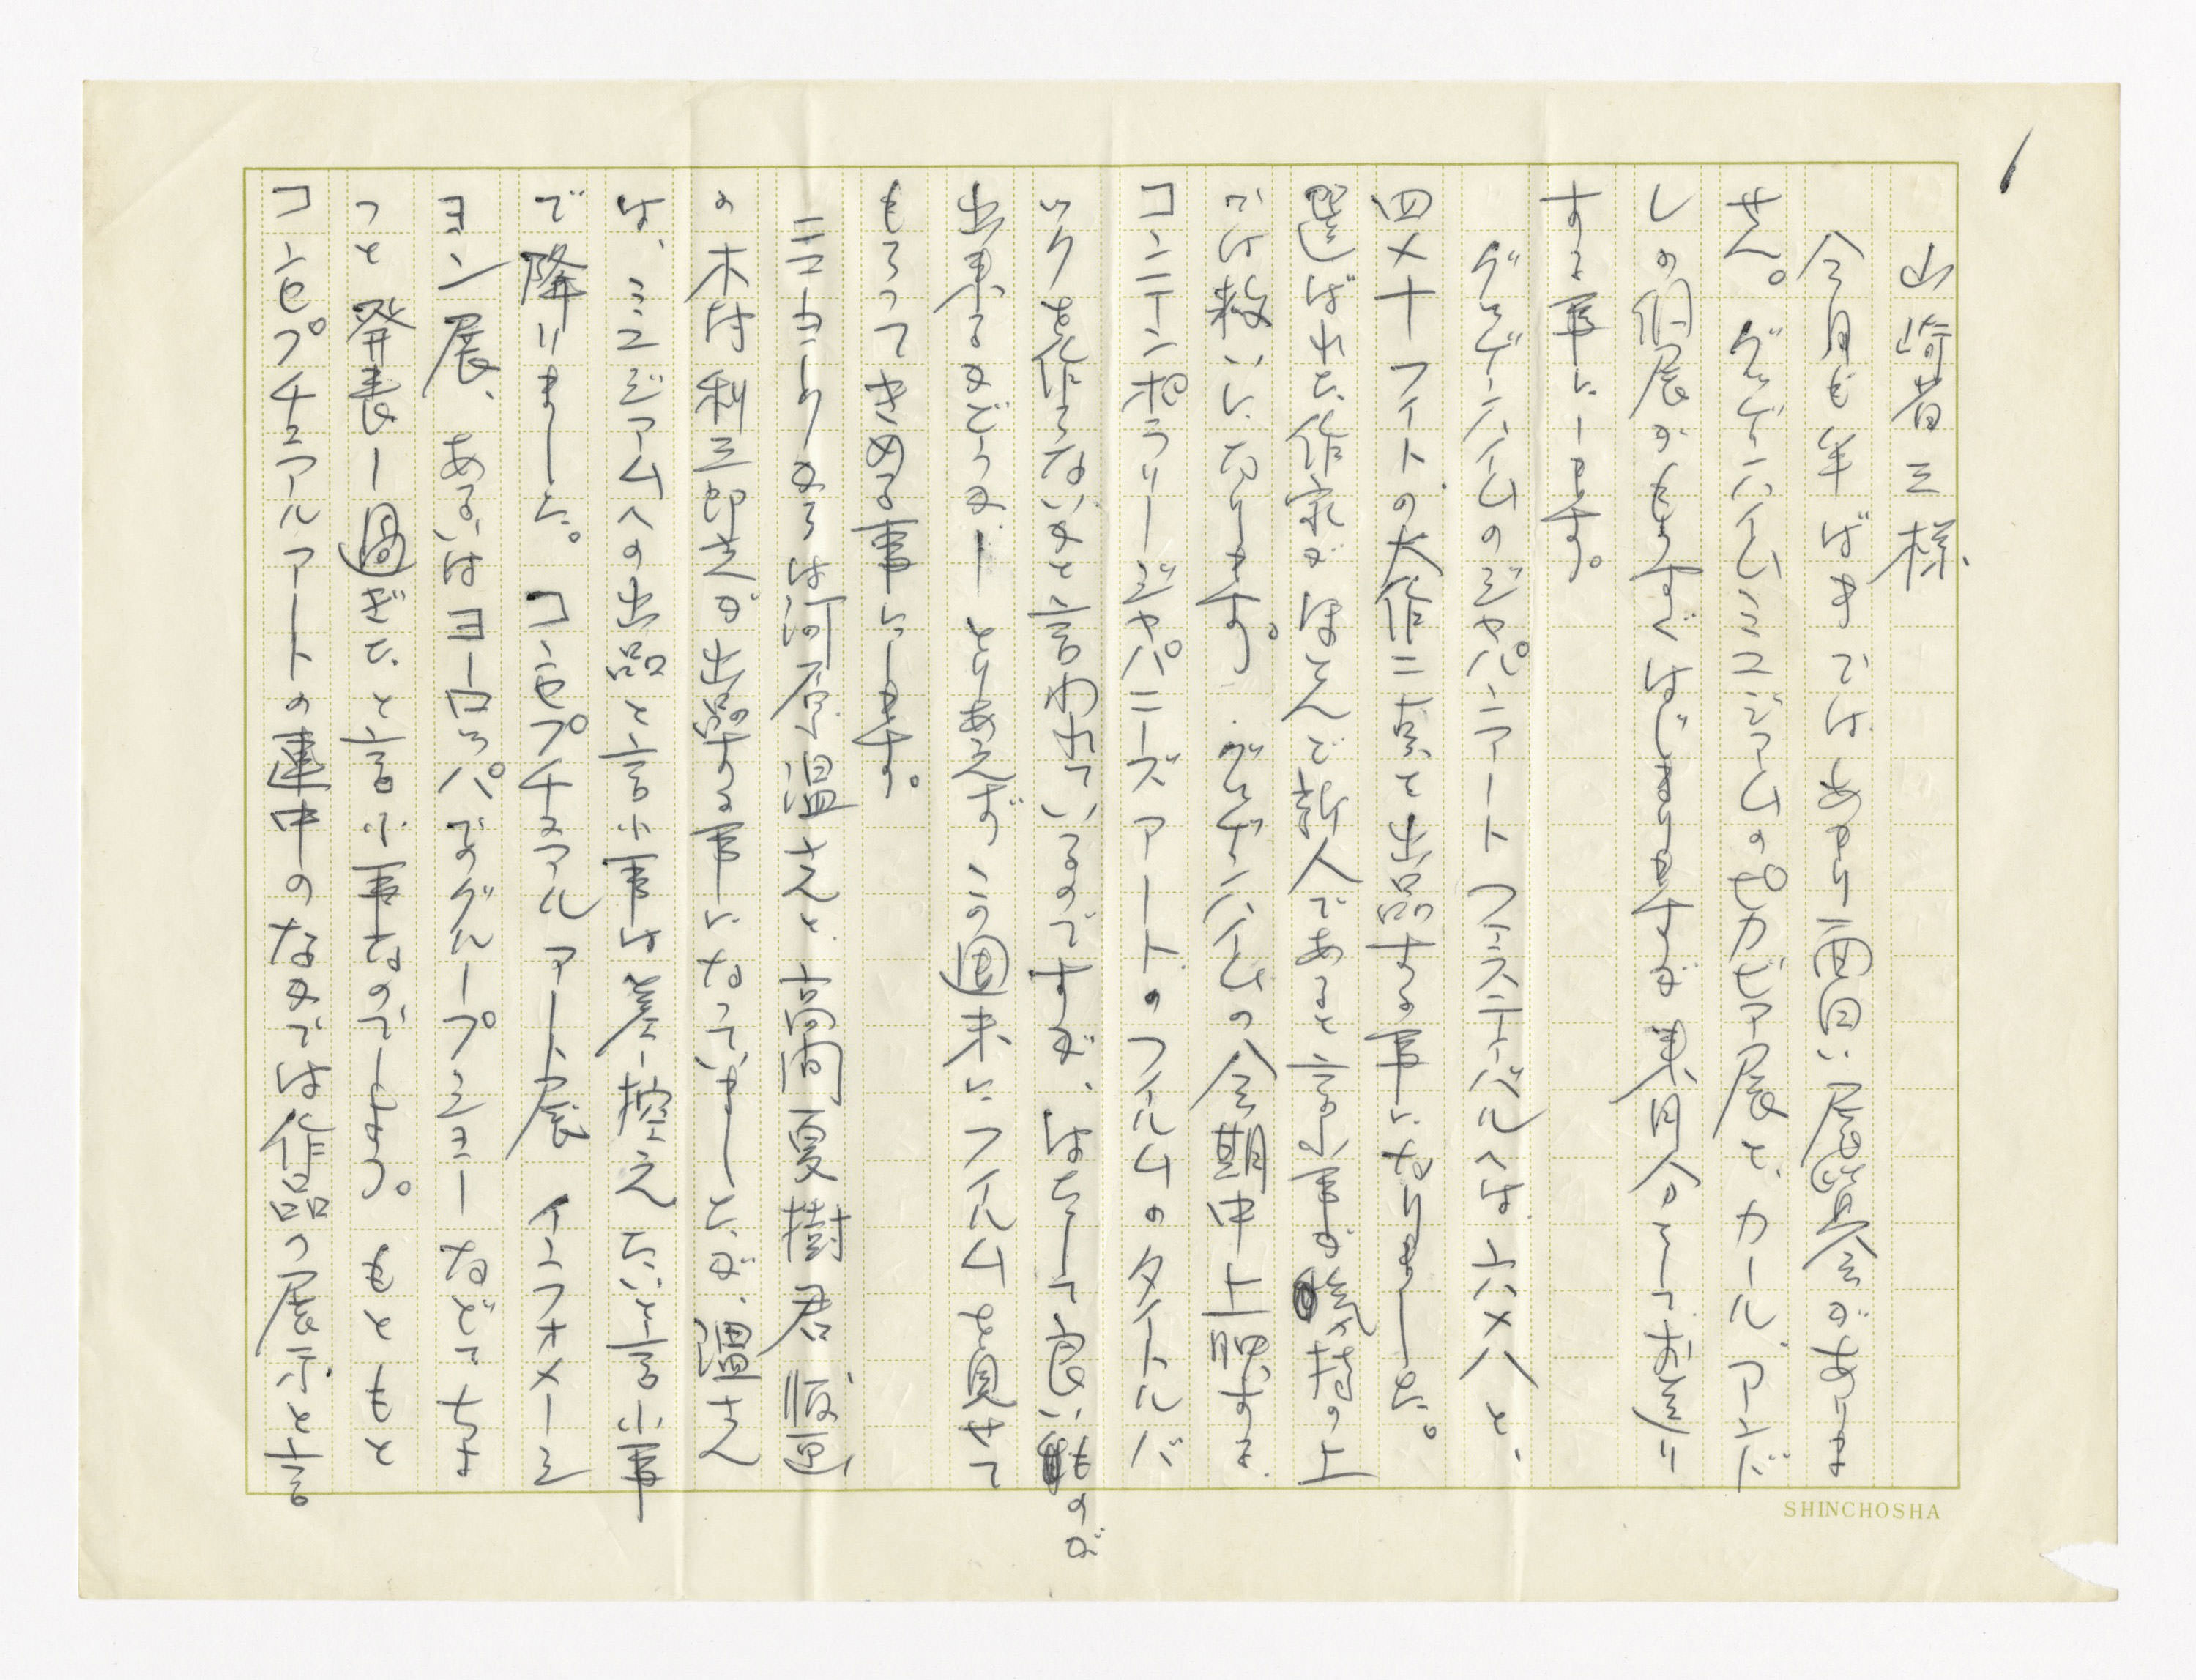 1
山崎省三様、
今月も半ばまではあまり面白い展覧会がありま
せん。グッゲンハイムミユジアムのピカビア展と、カール、アンド
レの個展がもうすぐはじまりますが美人として
する事にします。
グッゲンハイムのジャパンアートフェスティバルへは六×八と、
四×十フィートの大作二点を出品する事になりました。
選ばれた作家がほとんど新人であると言う事が気持の上
では救いになります。グッゲンハイムの会期中上映する
コンテンポラリージャパニーズアートのフィルムのタイトルバ
ックを作らないかと言われているのですが、はたして良いものが
出来るかどうか― とりあえずこの週末にフィルムを見せて
もらってきめる事にします。
ニューヨークからは河原温さんと、高岡夏樹君
の木村利三郎さんが出品する事になっていましたが、温さん
は、ミユジアムへの出品と言う事は差し控えたいと言う事
で降りました。コンセプチュアルアート展 インフォメーシ
ヨン展、あるいはヨーロッパでのグループショーなどでちょ
っと発表し過ぎたと言う事なのでしょう。もともと
コンセプチュアルアートの連中のなかでは作品の展示と言
SHINCHOSHA